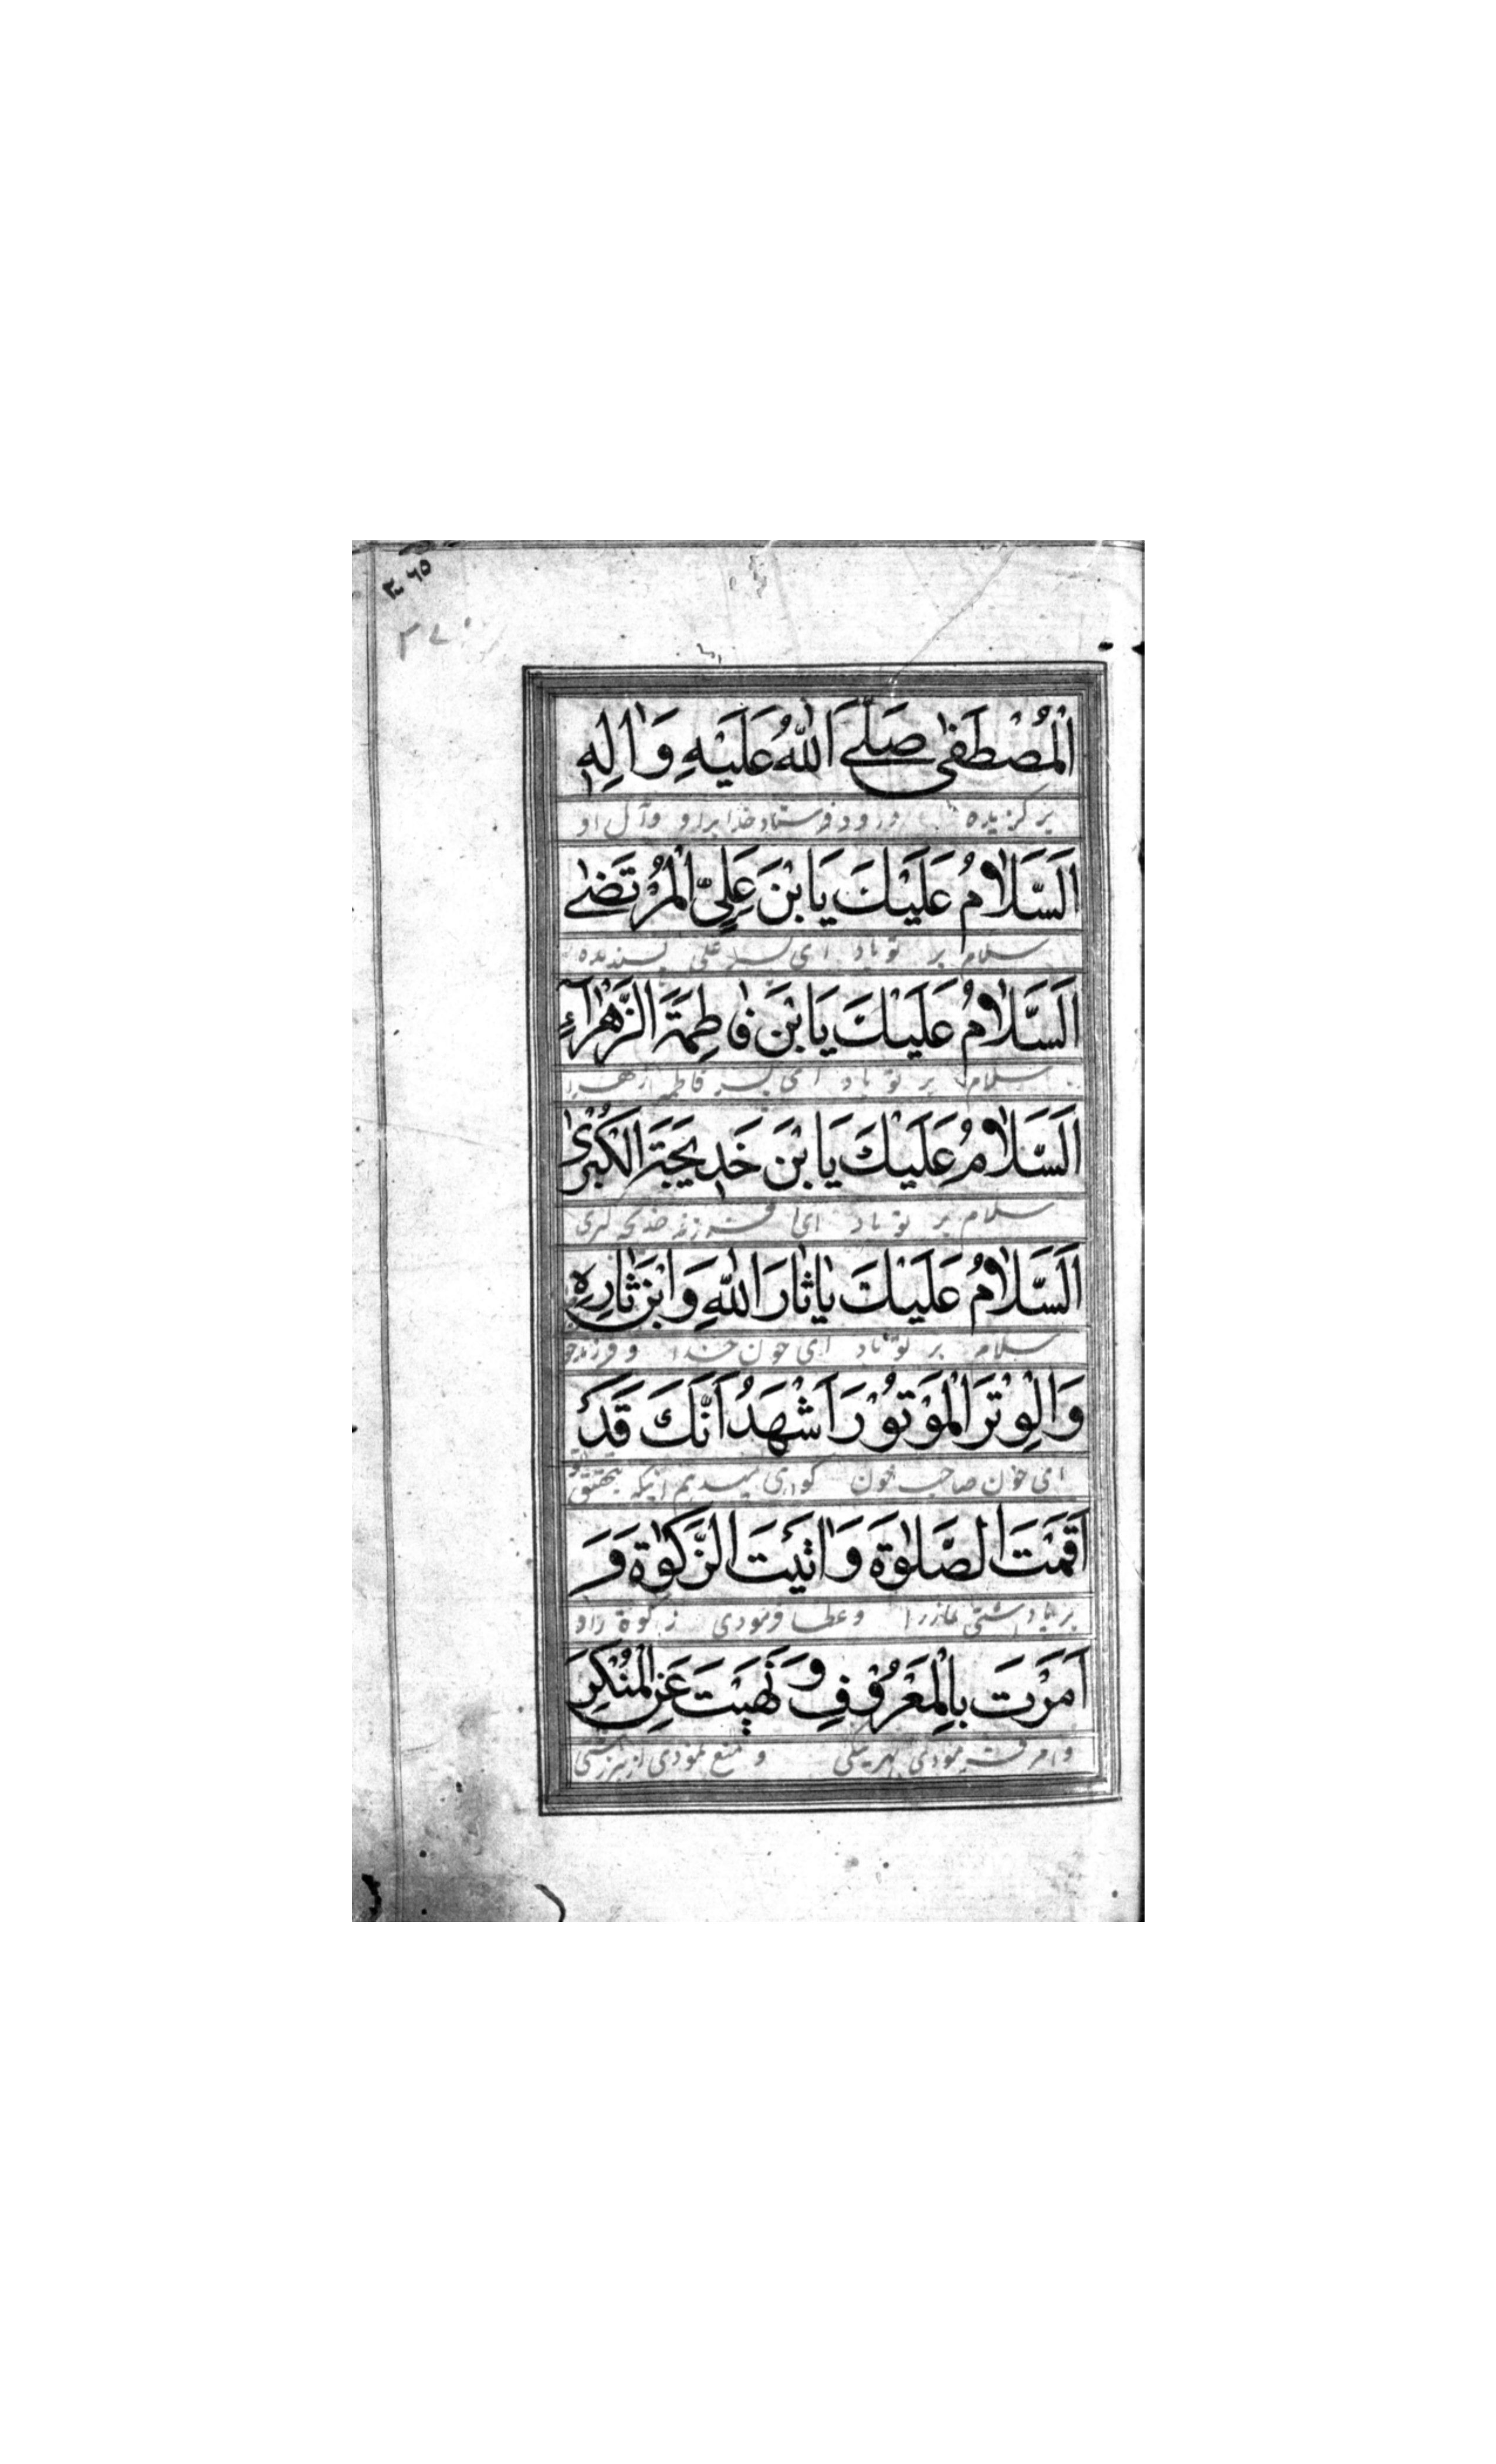 اَلْمُصْطَفٰى صَلَّے اَللّٰهُ عَلَيْهِ وَاٰلِهٖ
برگزیده درود فرستاد خدا بر او وآل او
اَلسَّلٰامُ عَلَيْكَ يَابْنَ عَلِيٍّ الْمُرْتَضٰے
سلام بر تو باد ای پسر علی پسندیده
اَلسَّلٰامُ عَلَيْكَ يَابْنَ فٰاطِمَةَ الزَّهْرٰآءِ
سلام بر تو باد ای پسر فاطمه زهرا
اَلسَّلٰامُ عَلَيْكَ يَابْنَ خَدٖيجَةَ الْكُبْرٰى
سلام بر تو باد ای فرزند خدیجه کبری
اَلسَّلٰامُ عَلَيْكَ يٰاثٰارَ اللّٰهِ وَابْنَ ثٰارِهِ
سلام بر تو باد ای خون خدا و فرزند خو
وَالْوِتْرَ الْمَوْتُوْرَ اَشْهَدُ اَنَّكَ قَدْ
ای خون صاحب خون گواهی میدهم اینکه بتحقیق تو
اَقَمْتَ الصَّلٰوةَ وَاٰتَيْتَ الزَّكٰوةَ وَ
برپا داشتی نمازرا وعطا فرمودی زکوة را و
اَمَرْتَ بِالْمَعْرُوْفِ وَنَهَيْتَ عَنِ الْمُنْكَرِ
وامر فرمودی بهرنیکی و منع نمودی از هر زشتی